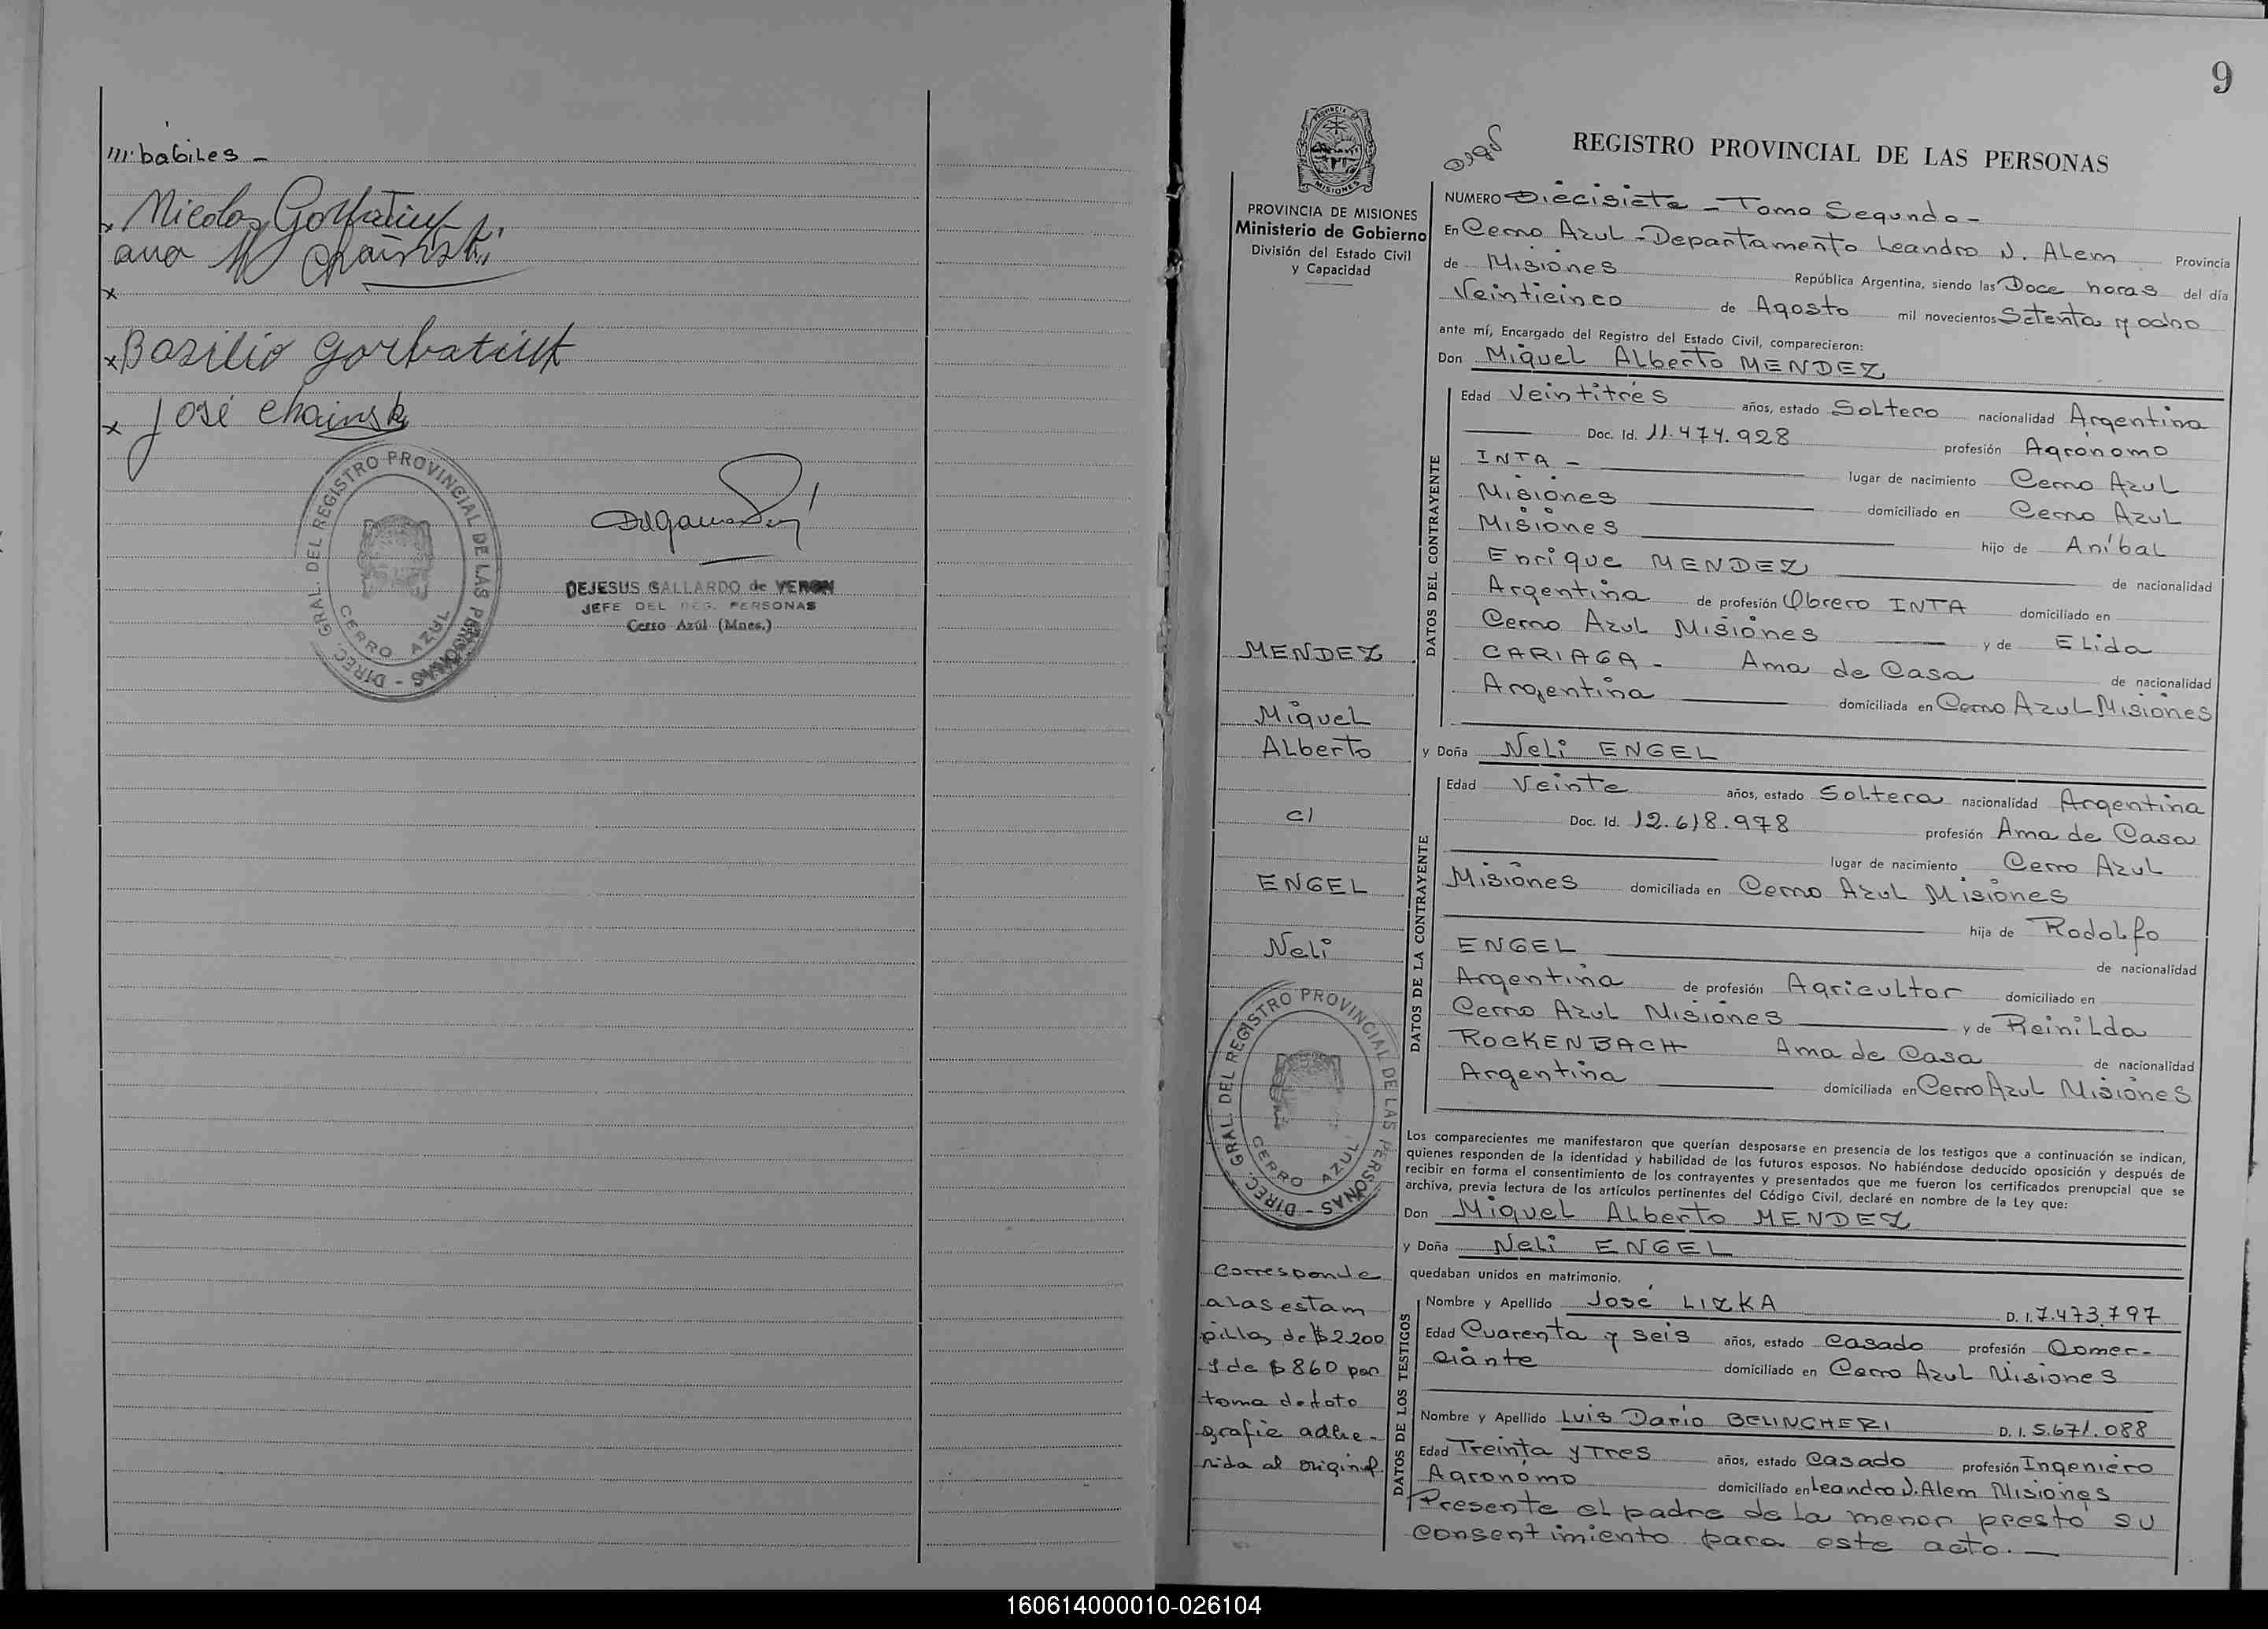 m. babiles -
x Nicolas Gorbatiuk
ana M chainski
x
x Basilio Gorbatiuk
x José chainski
DIREC. GRAL. DEL REGISTRO PROVINCIAL DE LAS PERSONAS - CERRO AZUL
DEJESUS GALLARDO de VERON
JEFE DEL REG. PERSONAS
Cerro Azúl (Mnes.)
9
PROVINCIA
MISIONES
PROVINCIA DE MISIONES
Ministerio de Gobierno
División del Estado Civil
y Capacidad
MENDEZ
Miguel
Alberto
c/
ENGEL
Neli
DIREC. GRAL. DEL REGISTRO PROVINCIAL DE LAS PERSONAS - CERRO AZUL
Corresponde
a las estam
pillas de $ 2.200
y de $ 860 por
toma de foto
grafía adhe-
rida al original
REGISTRO PROVINCIAL DE LAS PERSONAS
NUMERO Diecisiete - Tomo Segundo -
En Cerro Azul - Departamento Leandro N. Alem Provincia
de Misiones República Argentina, siendo las Doce horas del día
Veinticinco de Agosto mil novecientos Setenta y ocho
ante mí, Encargado del Registro del Estado Civil, comparecieron:
Don Miguel Alberto MENDEZ
DATOS DEL CONTRAYENTE
Edad Veintitrés años, estado Soltero nacionalidad Argentina
Doc. Id. 11.474.928 profesión Agrónomo
INTA - lugar de nacimiento Cerro Azul
Misiones domiciliado en Cerro Azul
Misiones hijo de Aníbal
Enrique MENDEZ de nacionalidad
Argentina de profesión Obrero INTA domiciliado en
Cerro Azul Misiones y de Elida
CARIAGA - Ama de Casa de nacionalidad
Argentina domiciliada en Cerro Azul Misiones
y Doña Neli ENGEL
DATOS DE LA CONTRAYENTE
Edad Veinte años, estado Soltera nacionalidad Argentina
Doc. Id. 12.618.978 profesión Ama de Casa
lugar de nacimiento Cerro Azul
Misiones domiciliada en Cerro Azul Misiones
hija de Rodolfo
ENGEL de nacionalidad
Argentina de profesión Agricultor domiciliado en
Cerro Azul Misiones y de Reinilda
ROCKENBACH Ama de Casa de nacionalidad
Argentina domiciliada en Cerro Azul Misiones
Los comparecientes me manifestaron que querían desposarse en presencia de los testigos que a continuación se indican,
quienes responden de la identidad y habilidad de los futuros esposos. No habiéndose deducido oposición y después de
recibir en forma el consentimiento de los contrayentes y presentados que me fueron los certificados prenupcial que se
archiva, previa lectura de los artículos pertinentes del Código Civil, declaré en nombre de la Ley que:
Don Miguel Alberto MENDEZ
y Doña Neli ENGEL
quedaban unidos en matrimonio.
DATOS DE LOS TESTIGOS
Nombre y Apellido José LIZKA D. I. 7.473.797
Edad Cuarenta y seis años, estado Casado profesión Comer-
ciante domiciliado en Cerro Azul Misiones
Nombre y Apellido Luis Darío BELINGHERI D. I. 5.671.088
Edad Treinta y Tres años, estado Casado profesión Ingeniero
Agronómo domiciliado en Leandro N. Alem Misiones
Presente el padre de la menor prestó su
consentimiento para este acto. —
160614000010-026104